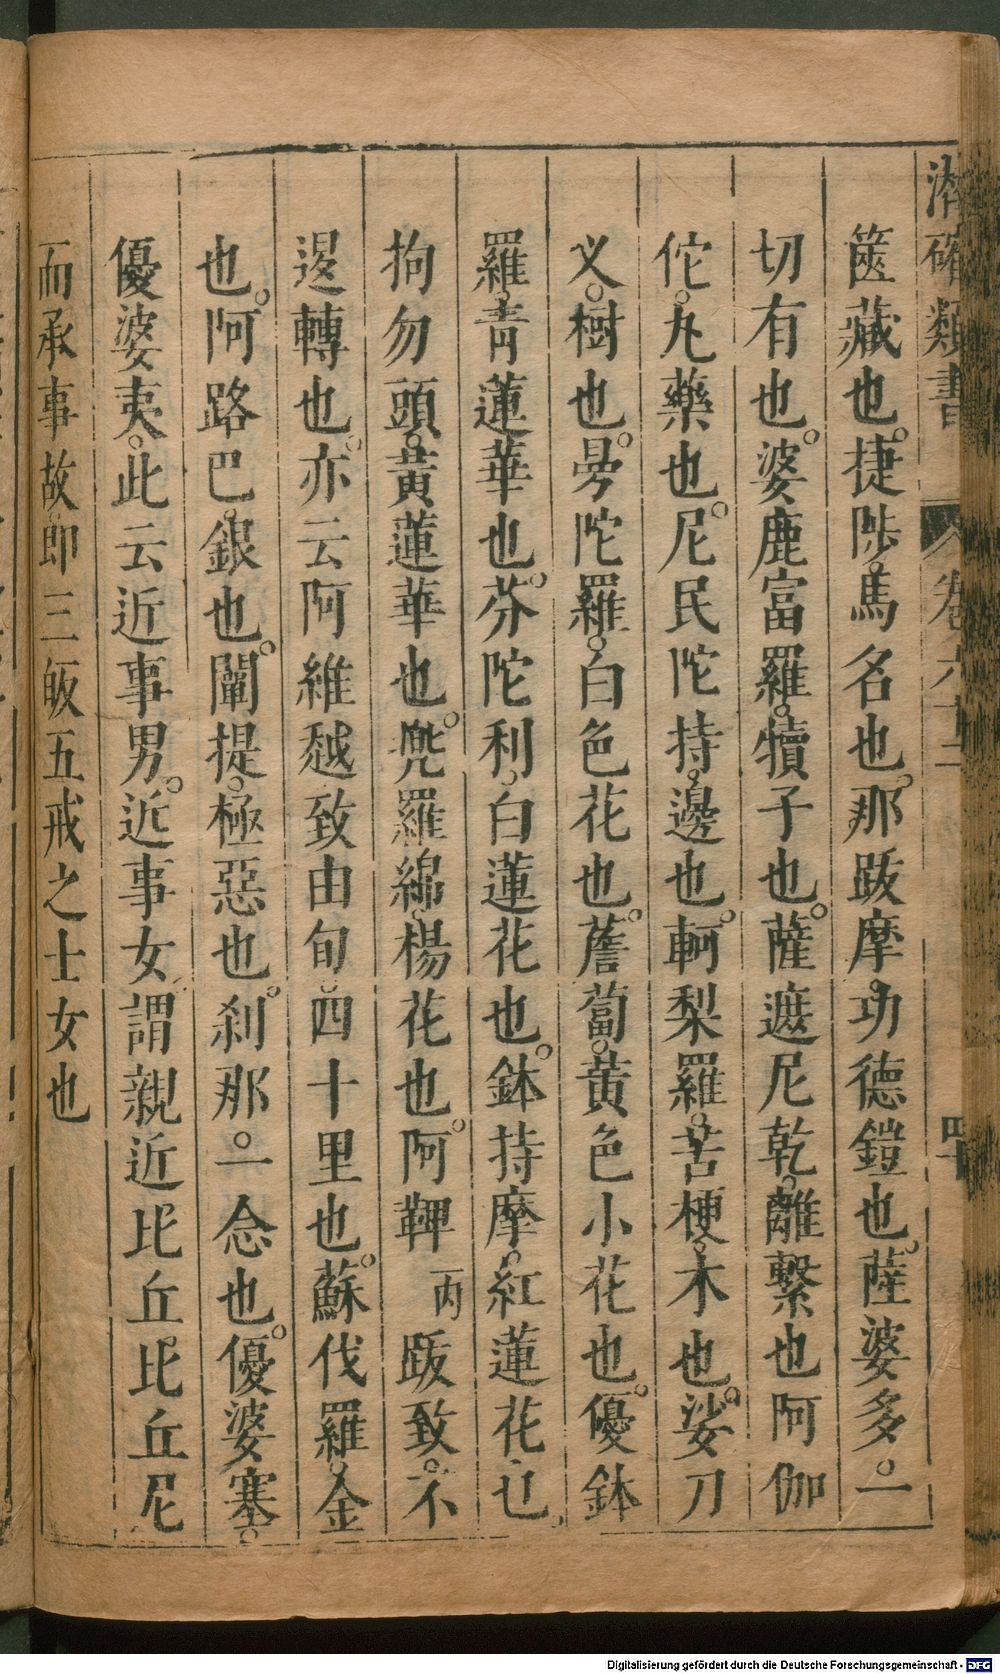 潛確類書 卷六十二 四十
篋藏也。捷陟。馬名也。那跋摩。功德鎧也。薩婆多。一
切有也。婆鹿富羅。犢子也。薩遮尼乾。離繫也阿伽
佗。丸藥也。尼民陀持。邊也。軻梨羅。苦梗。木也。娑刀
义。樹也。曼陀羅。白色花也。薝蔔。黃色小花也。優鉢
羅。青蓮華也。芬陀利。白蓮花也。鉢持摩。紅蓮花也。
拘勿頭。黃蓮華也。兠羅綿。楊花也。阿鞞一丙跋致。不
退轉也。亦云阿維越致由旬。四十里也。蘇伐羅。金
也。阿路巴。銀也。闡提。極惡也。刹那。一念也。優婆塞。
優婆夷。此云近事男。近事女謂親近比丘比丘尼
而承事故。即三皈五戒之士女也
Digitalisierung gefördert durch die Deutsche Forschungsgemeinschaft - DFG